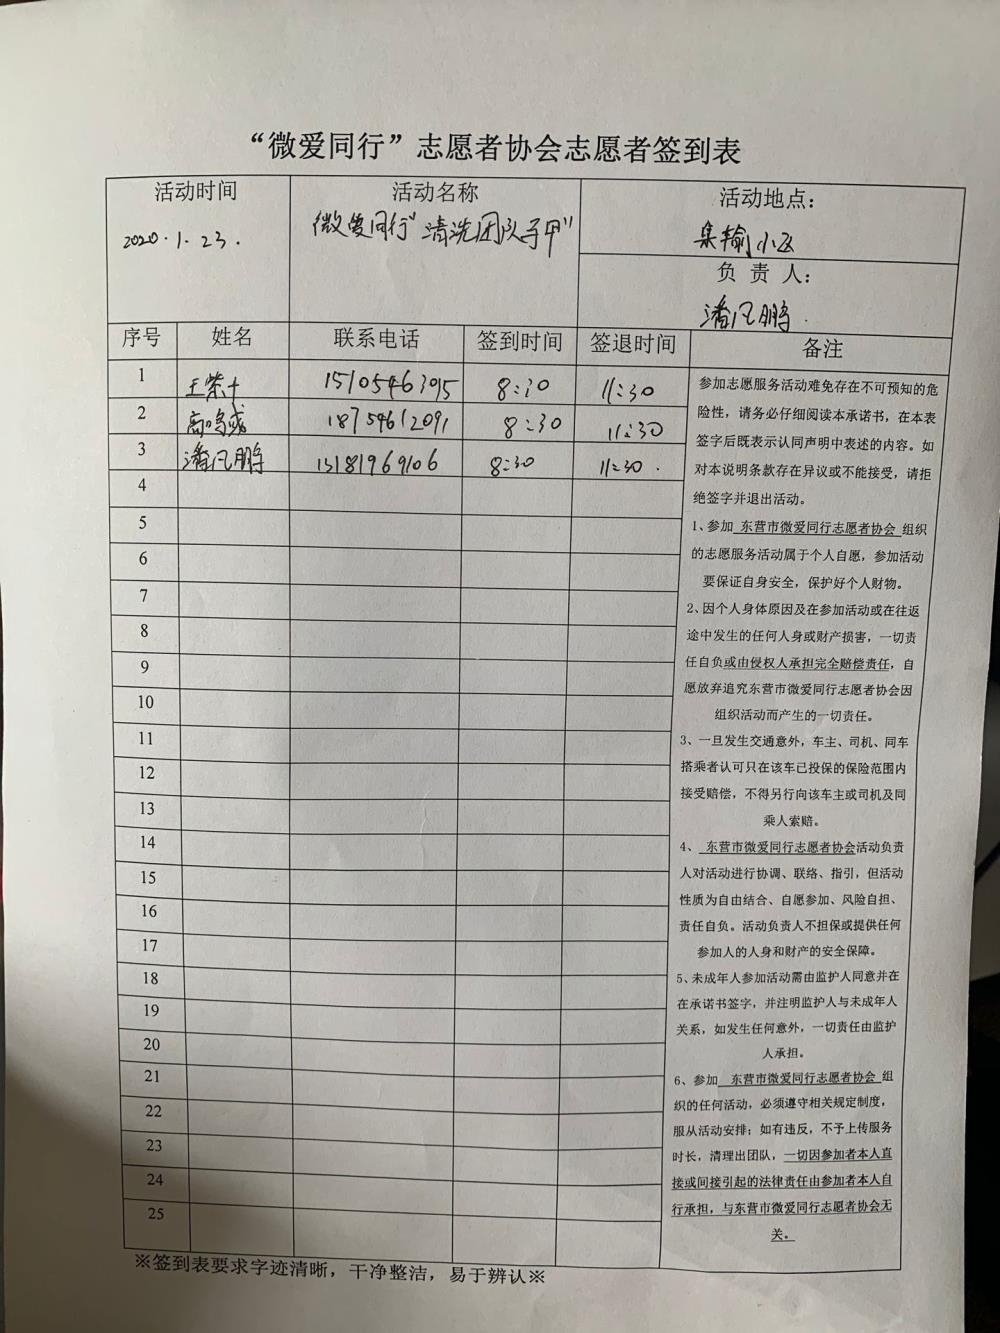 “微爱同行”志愿者协会志愿者签到表
活动时间 活动名称 活动地点：
2020.1.23. 微爱同行“清洗团队马甲” 集输小区
负 责 人：
潘凤鹏
序号 姓名 联系电话 签到时间 签退时间 备注
1 15105463095 8:30 11:30
2 高鸣 18754612091 8:30 11:30
3 潘凤鹏 15181969106 8:30 11:30.
4
5
6
7
8
9
10
11
12
13
14
15
16
17
18
19
20
21
22
23
24
25
参加志愿服务活动难免存在不可预知的危
险性，请务必仔细阅读本承诺书，在本表
签字后既表示认同声明中表述的内容。如
对本说明条款存在异议或不能接受，请拒
绝签字并退出活动。
1、参加 东营市微爱同行志愿者协会 组织
的志愿服务活动属于个人自愿，参加活动
要保证自身安全，保护好个人财物。
2、因个人身体原因及在参加活动或在往返
途中发生的任何人身或财产损害，一切责
任自负或由侵权人承担完全赔偿责任，自
愿放弃追究东营市微爱同行志愿者协会因
组织活动而产生的一切责任。
3、一旦发生交通意外，车主、司机、同车
搭乘者认可只在该车已投保的保险范围内
接受赔偿，不得另行向该车主或司机及同
乘人索赔。
4、 东营市微爱同行志愿者协会活动负责
人对活动进行协调、联络、指引，但活动
性质为自由结合、自愿参加、风险自担、
责任自负。活动负责人不担保或提供任何
参加人的人身和财产的安全保障。
5、未成年人参加活动需由监护人同意并在
在承诺书签字，并注明监护人与未成年人
关系，如发生任何意外，一切责任由监护
人承担。
6、参加 东营市微爱同行志愿者协会 组
织的任何活动，必须遵守相关规定制度，
服从活动安排；如有违反，不予上传服务
时长，清理出团队，一切因参加者本人直
接或间接引起的法律责任由参加者本人自
行承担，与东营市微爱同行志愿者协会无
关。
※签到表要求字迹清晰，干净整洁，易于辨认※